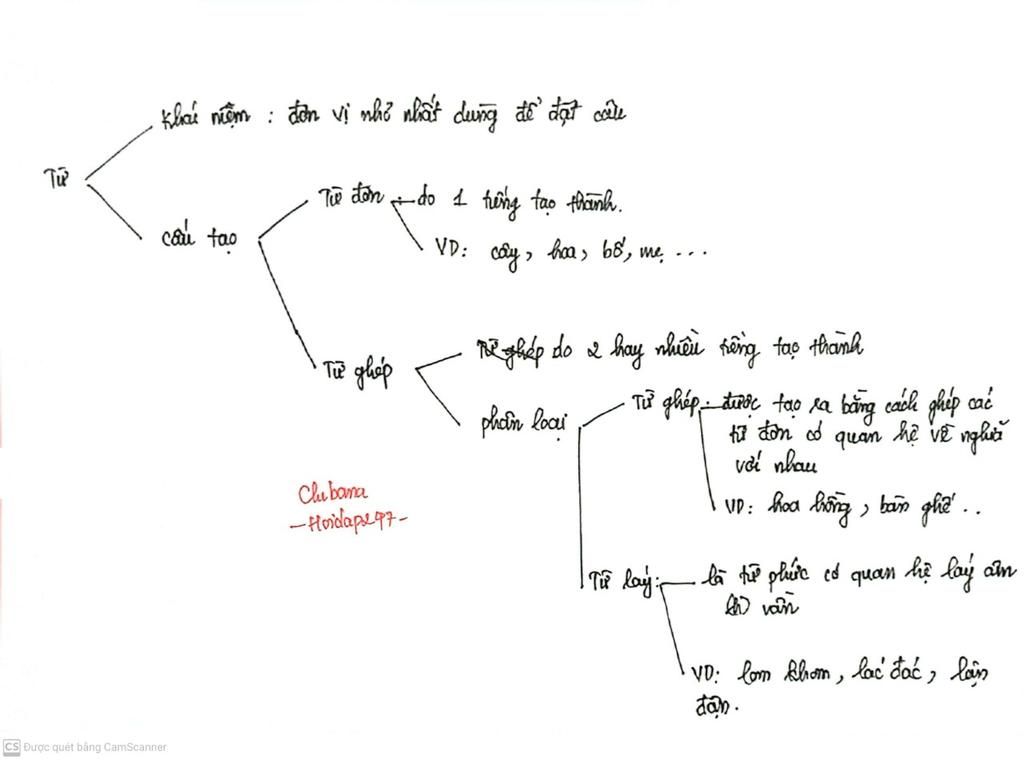 Khái niệm : đơn vị nhỏ nhất dùng để đặt câu
Từ
Cấu tạo
Từ đơn : do 1 tiếng tạo thành.
VD: cây, hoa, bố, mẹ ...
Từ ghép
Từ ghép do 2 hay nhiều tiếng tạo thành
phân loại
Từ ghép : được tạo ra bằng cách ghép các
từ đơn có quan hệ về nghĩa
với nhau
VD: hoa hồng, bàn ghế ..
Từ láy: là từ phức có quan hệ láy âm
vần
VD: lom khom, lác đác, lận
đận.
Clubana
- Hoidap247 -
CS Được quét bằng CamScanner